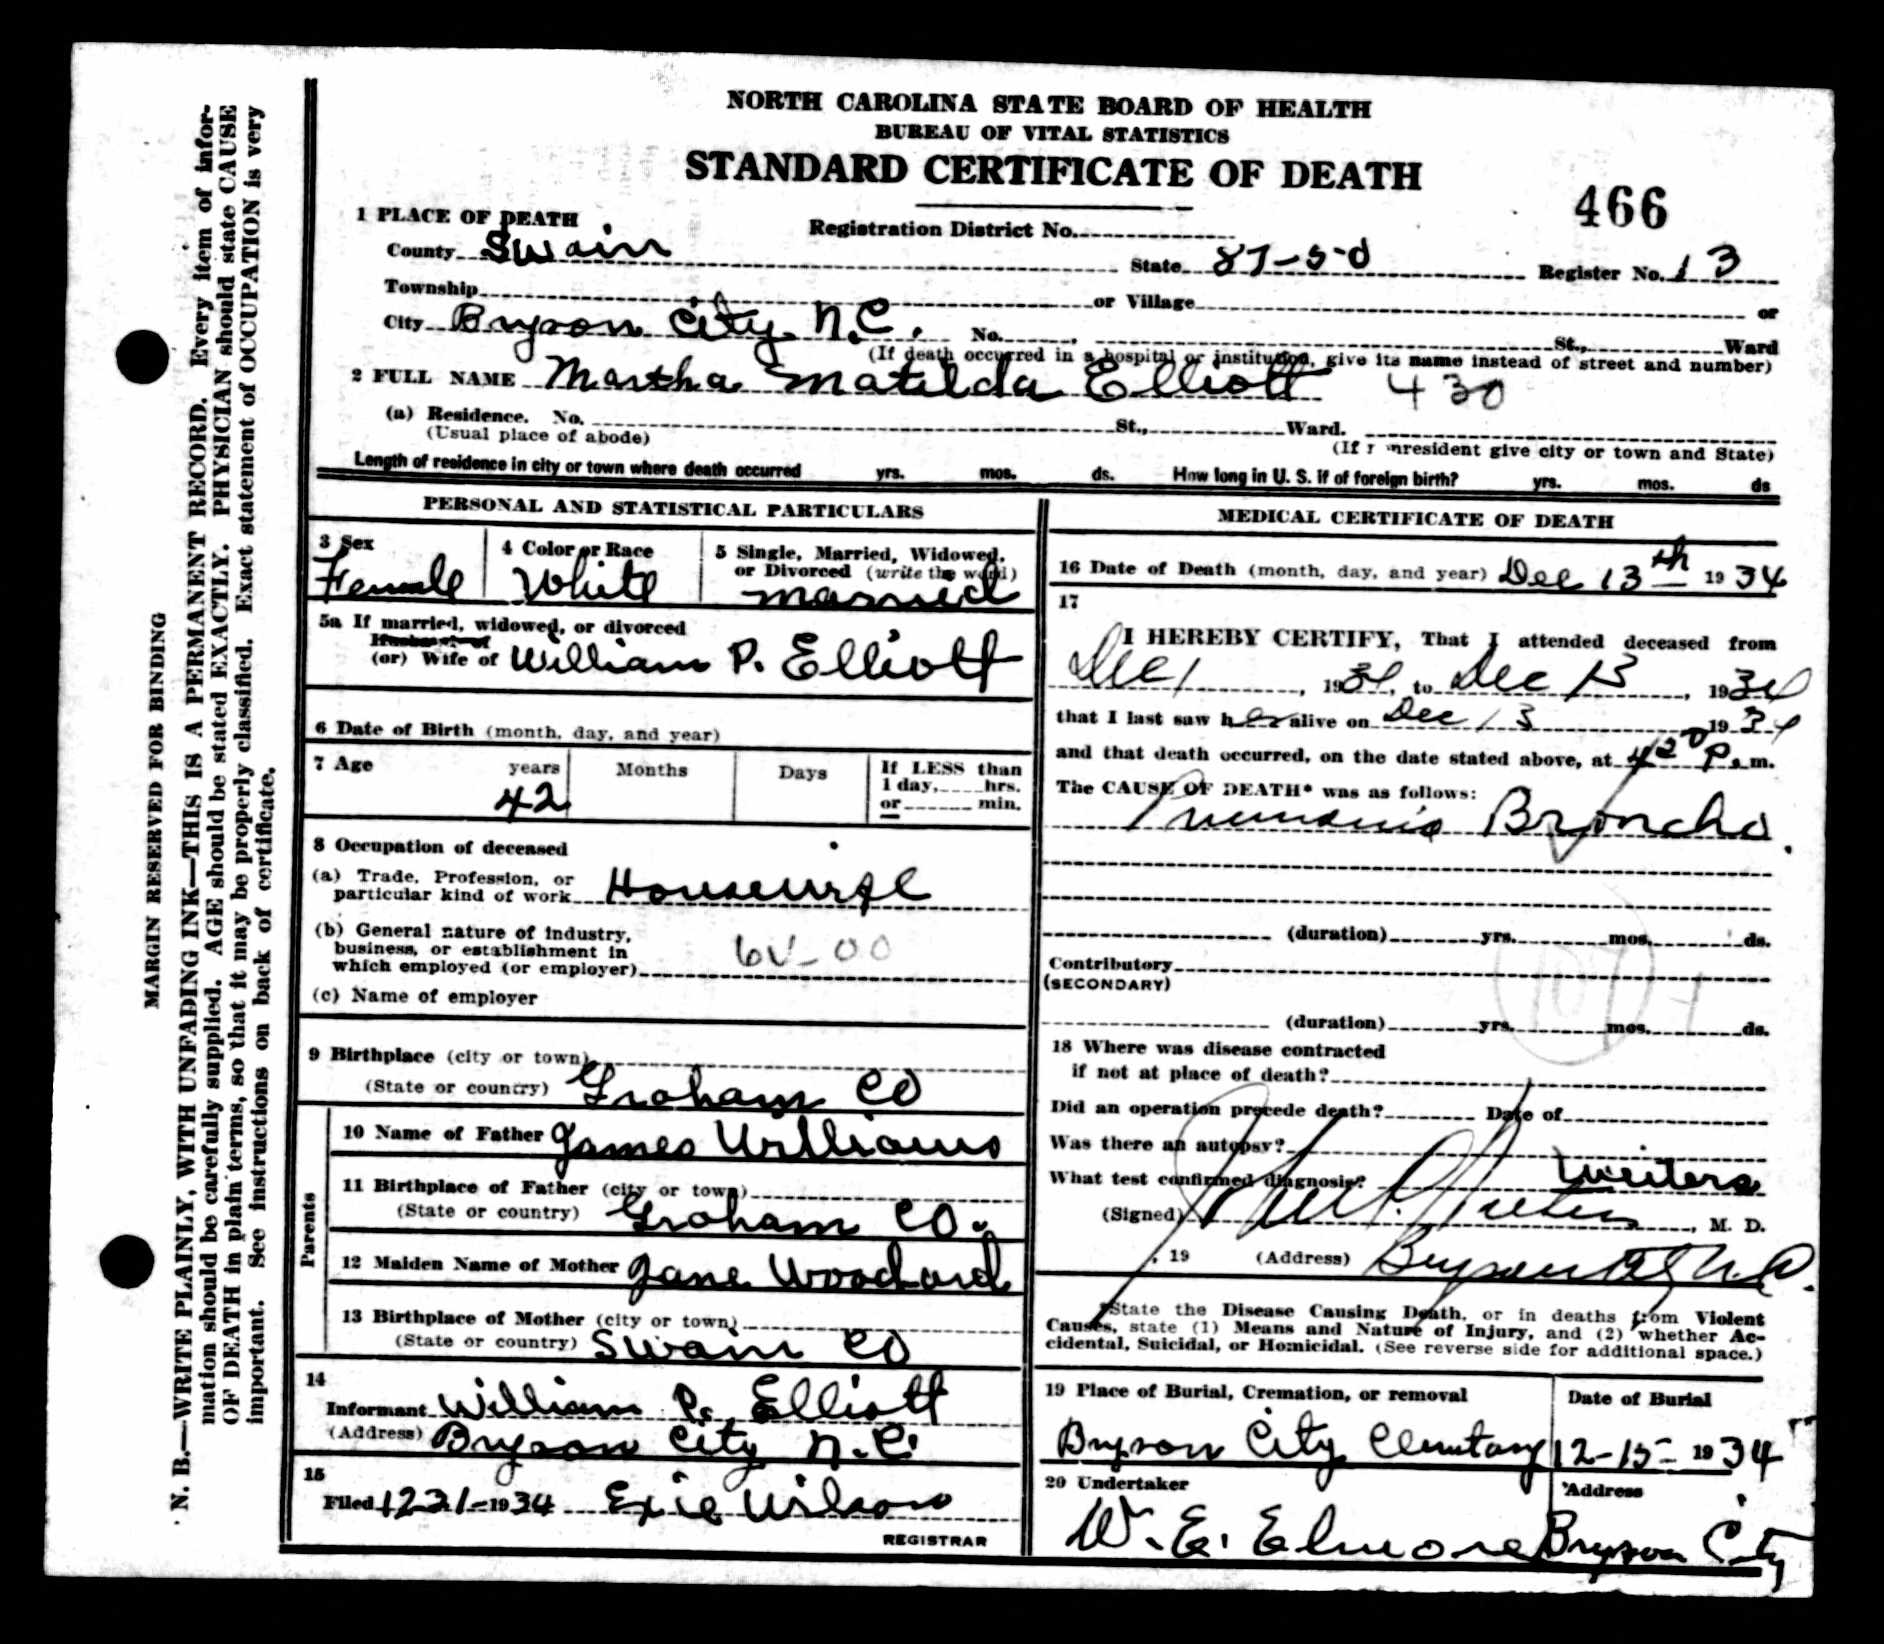 NORTH CAROLINA STATE BOARD OF HEALTH
BUREAU OF VITAL STATISTICS
STANDARD CERTIFICATE OF DEATH
466
1 PLACE OF DEATH
Registration District No.
County Swain State 87-50 Register No. 13
Township or Village or
City Bryson City N.C. No. St., Ward
(If death occurred in a hospital or institution, give its name instead of street and number)
2 FULL NAME Martha Matilda Elliott 430
(a) Residence. No. St., Ward.
(Usual place of abode) (If nonresident give city or town and State)
Length of residence in city or town where death occurred yrs. mos. ds. How long in U. S. if of foreign birth? yrs. mos. ds
PERSONAL AND STATISTICAL PARTICULARS
3 Sex 4 Color or Race 5 Single, Married, Widowed, or Divorced (write the word)
Female White Married
5a If married, widowed, or divorced
Husband of
(or) Wife of William P. Elliott
6 Date of Birth (month, day, and year)
7 Age years Months Days If LESS than
1 day, hrs.
42 or min.
8 Occupation of deceased
(a) Trade, Profession, or
particular kind of work Housewife
(b) General nature of industry,
business, or establishment in
which employed (or employer)
(c) Name of employer
9 Birthplace (city or town)
(State or country) Graham CO
Parents
10 Name of Father James Williams
11 Birthplace of Father (city or town)
(State or country) Graham CO.
12 Maiden Name of Mother Jane Woodard
13 Birthplace of Mother (city or town)
(State or country) Swain CO
14
Informant William P. Elliott
(Address) Bryson City N.C.
15
Filed 12 31-1934 Exie Wilson
REGISTRAR
MEDICAL CERTIFICATE OF DEATH
16 Date of Death (month, day, and year) Dec 13th 1934
17
I HEREBY CERTIFY, That I attended deceased from
Dec 1, 1934, to Dec 13, 1934
that I last saw her alive on Dec 13 1934
and that death occurred, on the date stated above, at 4 20 P. m.
The CAUSE OF DEATH* was as follows:
Pneumonia Broncho
(duration) yrs. mos. ds.
Contributory
(SECONDARY)
(duration) yrs. mos. ds.
107-1
18 Where was disease contracted
if not at place of death?
Did an operation precede death? Date of
Was there an autopsy?
What test confirmed diagnosis?
(Signed) , M. D.
, 19 (Address) Bryson City N.C.
*State the Disease Causing Death, or in deaths from Violent
Causes, state (1) Means and Nature of Injury, and (2) whether Ac-
cidental, Suicidal, or Homicidal. (See reverse side for additional space.)
19 Place of Burial, Cremation, or removal Date of Burial
Bryson City Cemetary 12-15-1934
20 Undertaker Address
W. E. Elmore Bryson City
MARGIN RESERVED FOR BINDING
N. B.—WRITE PLAINLY, WITH UNFADING INK—THIS IS A PERMANENT RECORD. Every item of infor-
mation should be carefully supplied. AGE should be stated EXACTLY. PHYSICIAN should state CAUSE
OF DEATH in plain terms, so that it may be properly classified. Exact statement of OCCUPATION is very
important. See instructions on back of certificate.